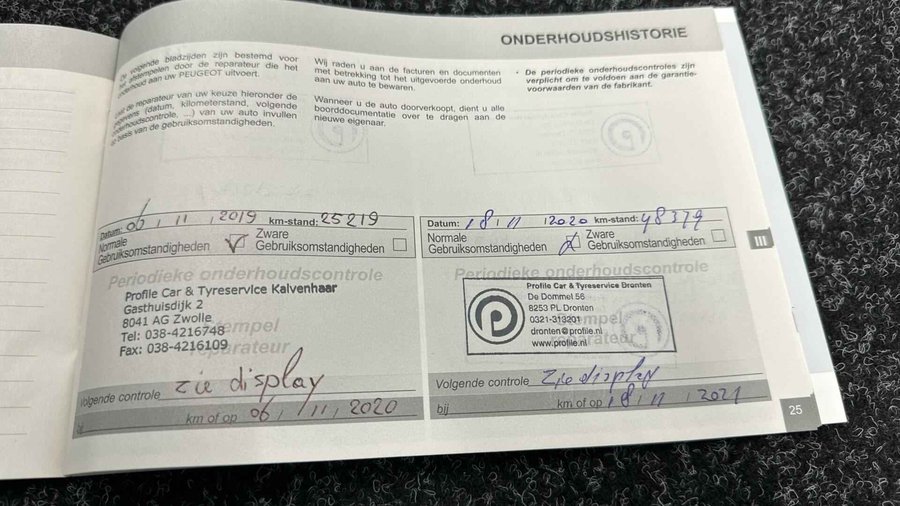 ONDERHOUDSHISTORIE
De volgende bladzijden zijn bestemd voor
het afstempelen door de reparateur die het
onderhoud aan uw PEUGEOT uitvoert.
de reparateur van uw keuze hieronder de
gegevens (datum, kilometerstand, volgende
onderhoudscontrole, ...) van uw auto invullen
op basis van de gebruiksomstandigheden.
Wij raden u aan de facturen en documenten
met betrekking tot het uitgevoerde onderhoud
aan uw auto te bewaren.
Wanneer u de auto doorverkoopt, dient u alle
boorddocumentatie over te dragen aan de
nieuwe eigenaar.
• De periodieke onderhoudscontroles zijn
verplicht om te voldoen aan de garantie-
voorwaarden van de fabrikant.
Datum: 06 / 11 / 2019 km-stand: 25219
Normale
Gebruiksomstandigheden
Zware
Gebruiksomstandigheden
Periodieke onderhoudscontrole
Profile Car & Tyreservice Kalvenhaar
Gasthuisdijk 2
8041 AG Zwolle
Tel: 038-4216748
Fax: 038-4216109
Stempel
reparateur
Volgende controle zie display
bij km of op 06 / 11 / 2020
Datum: 18 / 11 / 2020 km-stand: 48379
Normale
Gebruiksomstandigheden
Zware
Gebruiksomstandigheden
Periodieke onderhoudscontrole
Profile Car & Tyreservice Dronten
De Dommel 56
8253 PL Dronten
0321-313201
dronten@profile.nl
www.profile.nl
Stempel
reparateur
Volgende controle zie display
bij km of op 18 / 11 / 2021
III
25